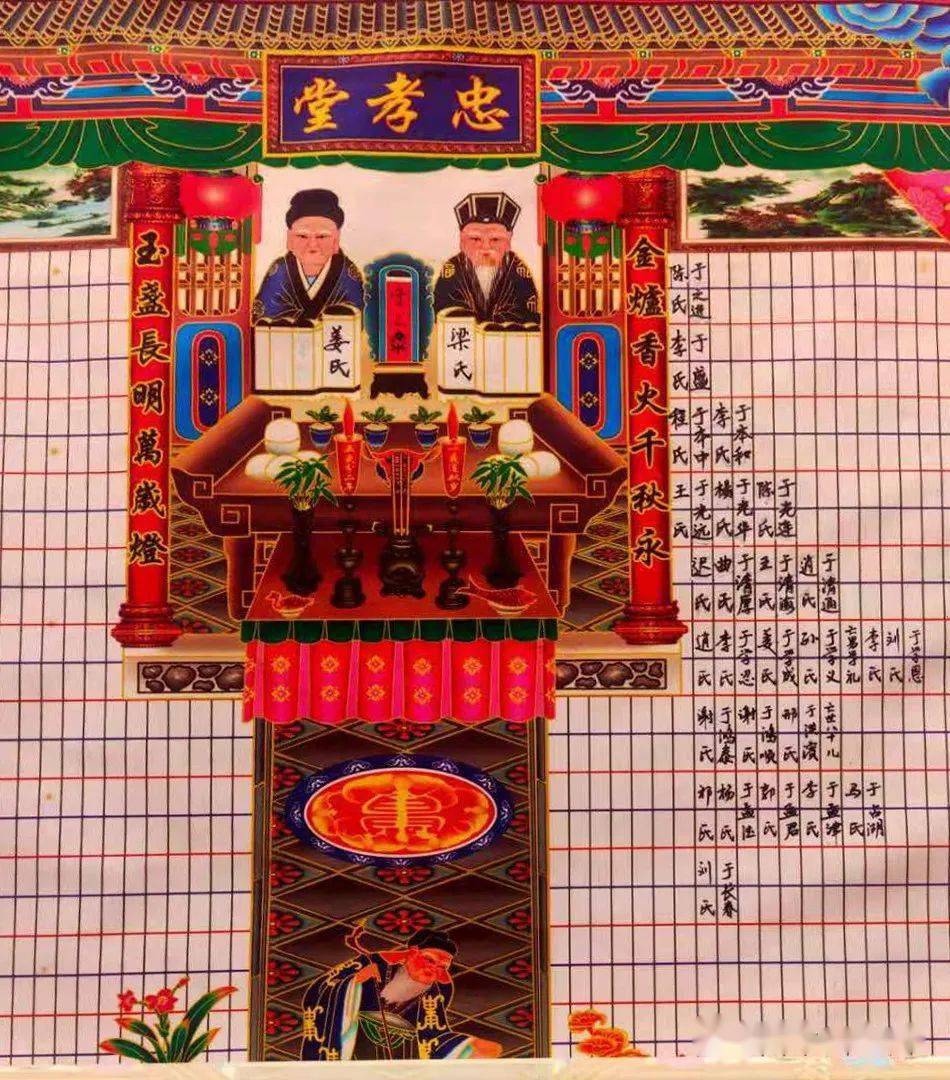 忠孝堂
金爐香火千秋永
玉盞長明萬歲燈
梁氏
姜氏
于之進
陈氏
于盛
李氏
于本和
李氏
于本中
程氏
于光连
陈氏
于光华
楊氏
于光远
王氏
于清通
逍氏
于清海
王氏
于清厚
曲氏
迟氏
于学恩
刘氏
李氏
于学义
孙氏
于学成
姜氏
于学忠
李氏
逍氏
于洪滨
邢氏
于鴻順
谢氏
于鴻泰
谢氏
于占湖
马氏
于孟津
李氏
于孟君
郭氏
杨氏
祁氏
于长春
刘氏